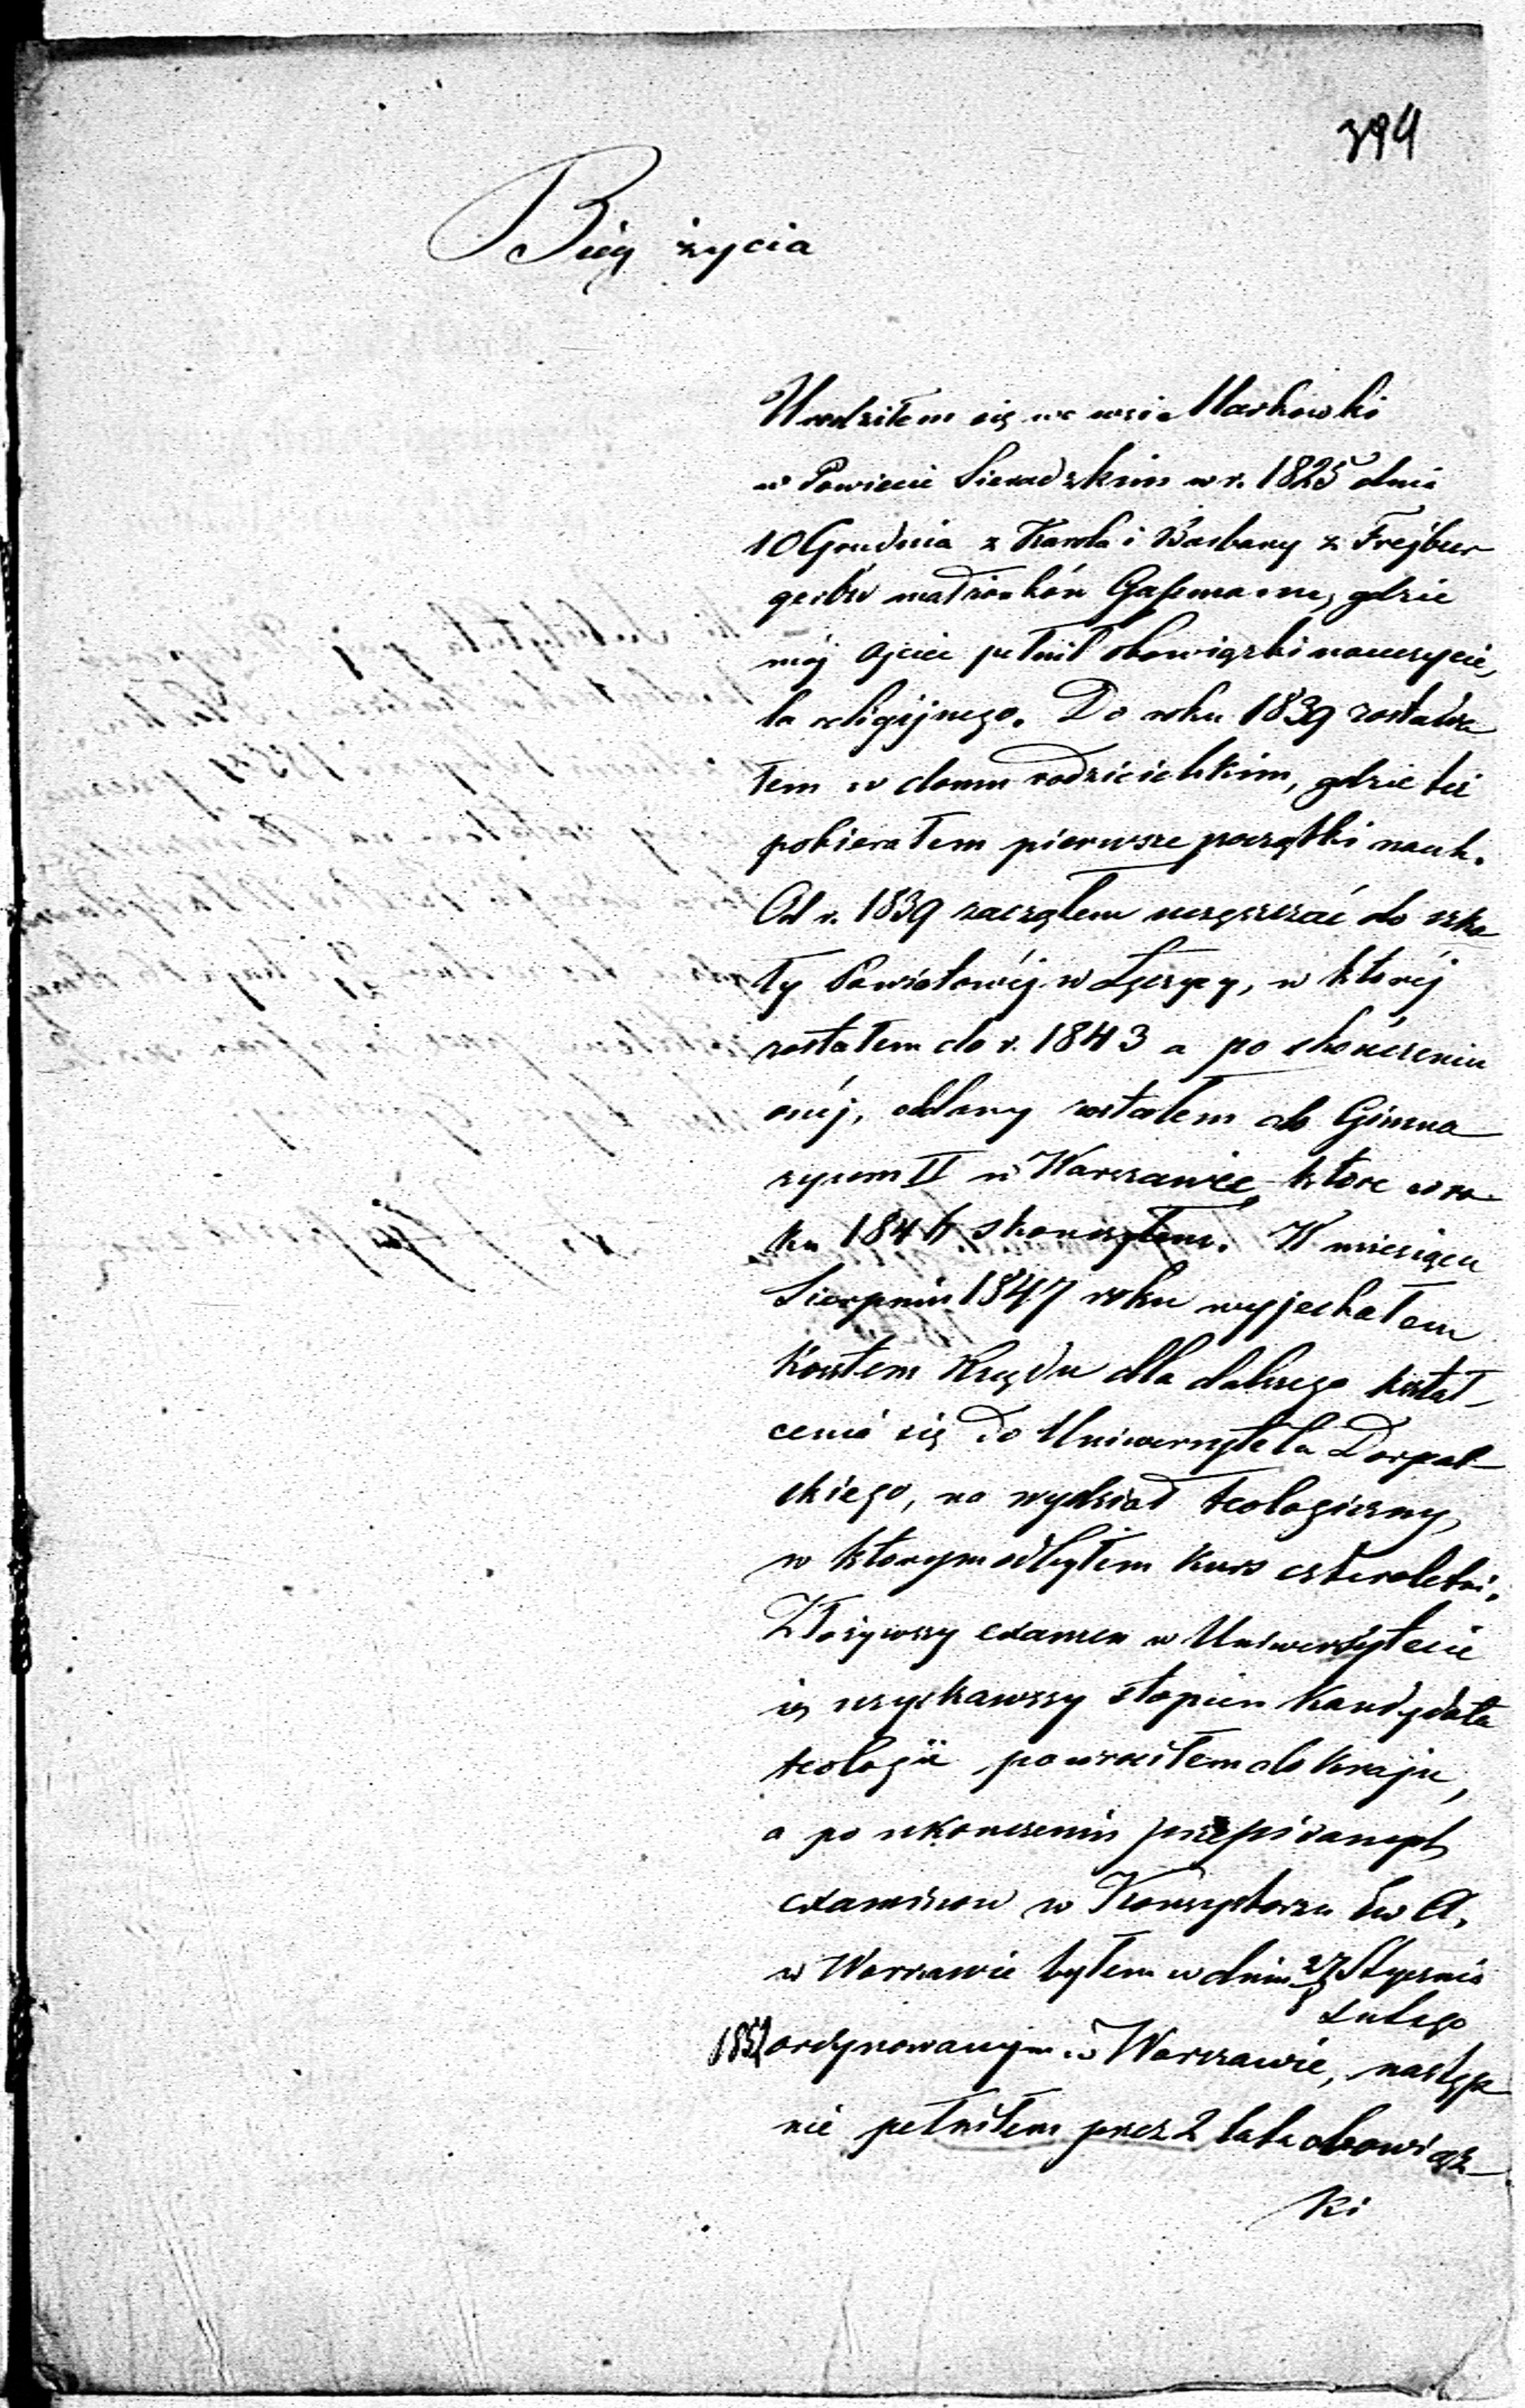 394
Bieg życia
Urodziłem się we wsi Markówki
w Powiecie Sieradzkim w r. 1825 dnia
10 Grudnia z Karola i Barbary z Frejbur
gerów małżonków Gassmann, gdzie
mój ojciec pełnił obowiązki nauczycie,
la religijnego. Do roku 1839 zostawa
łem w domu rodzicielskim, gdzie też
pobierałem pierwsze początki nauk.
Od r. 1839 zacząłem uczęszczać do szko
ły Powiatowéj w Łęczycy, w któréj
zostałem do r. 1843 a po skończeniu
onéj, oddany zostałem do Gimna
zyum II w Warszawie, które w ro
ku 1846 skończyłem. W miesiącu
Sierpniu 1847 roku wyjechałem
kosztem Rządu dla dalszego kształ-
cenia się do Uniwersytetu Dorpat-
skiego, na wydział teologiczny,
w którym odbyłem kurs czteroletni.
Złożywszy examen w Uniwersytecie
i uzyskawszy stopień Kandydata
teologii powróciłem do kraju,
a po ukończeniu przepisanych
examinów w Konsystorzu Ew A.
w Warszawie byłem w dniu 27 Stycznia
8 Lutego
ordynowanym w Warszawie, następ
nie pełniłem przez 2 lata obowiąz-
ki